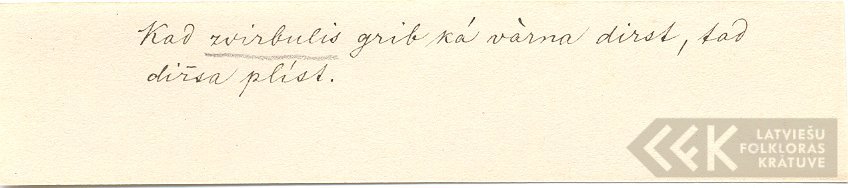 Kad zvirbulis grib ká vàrna dirst, tad
dir̃sa plíst.
LATVIEŠU
FOLKLORAS
KRĀTUVE